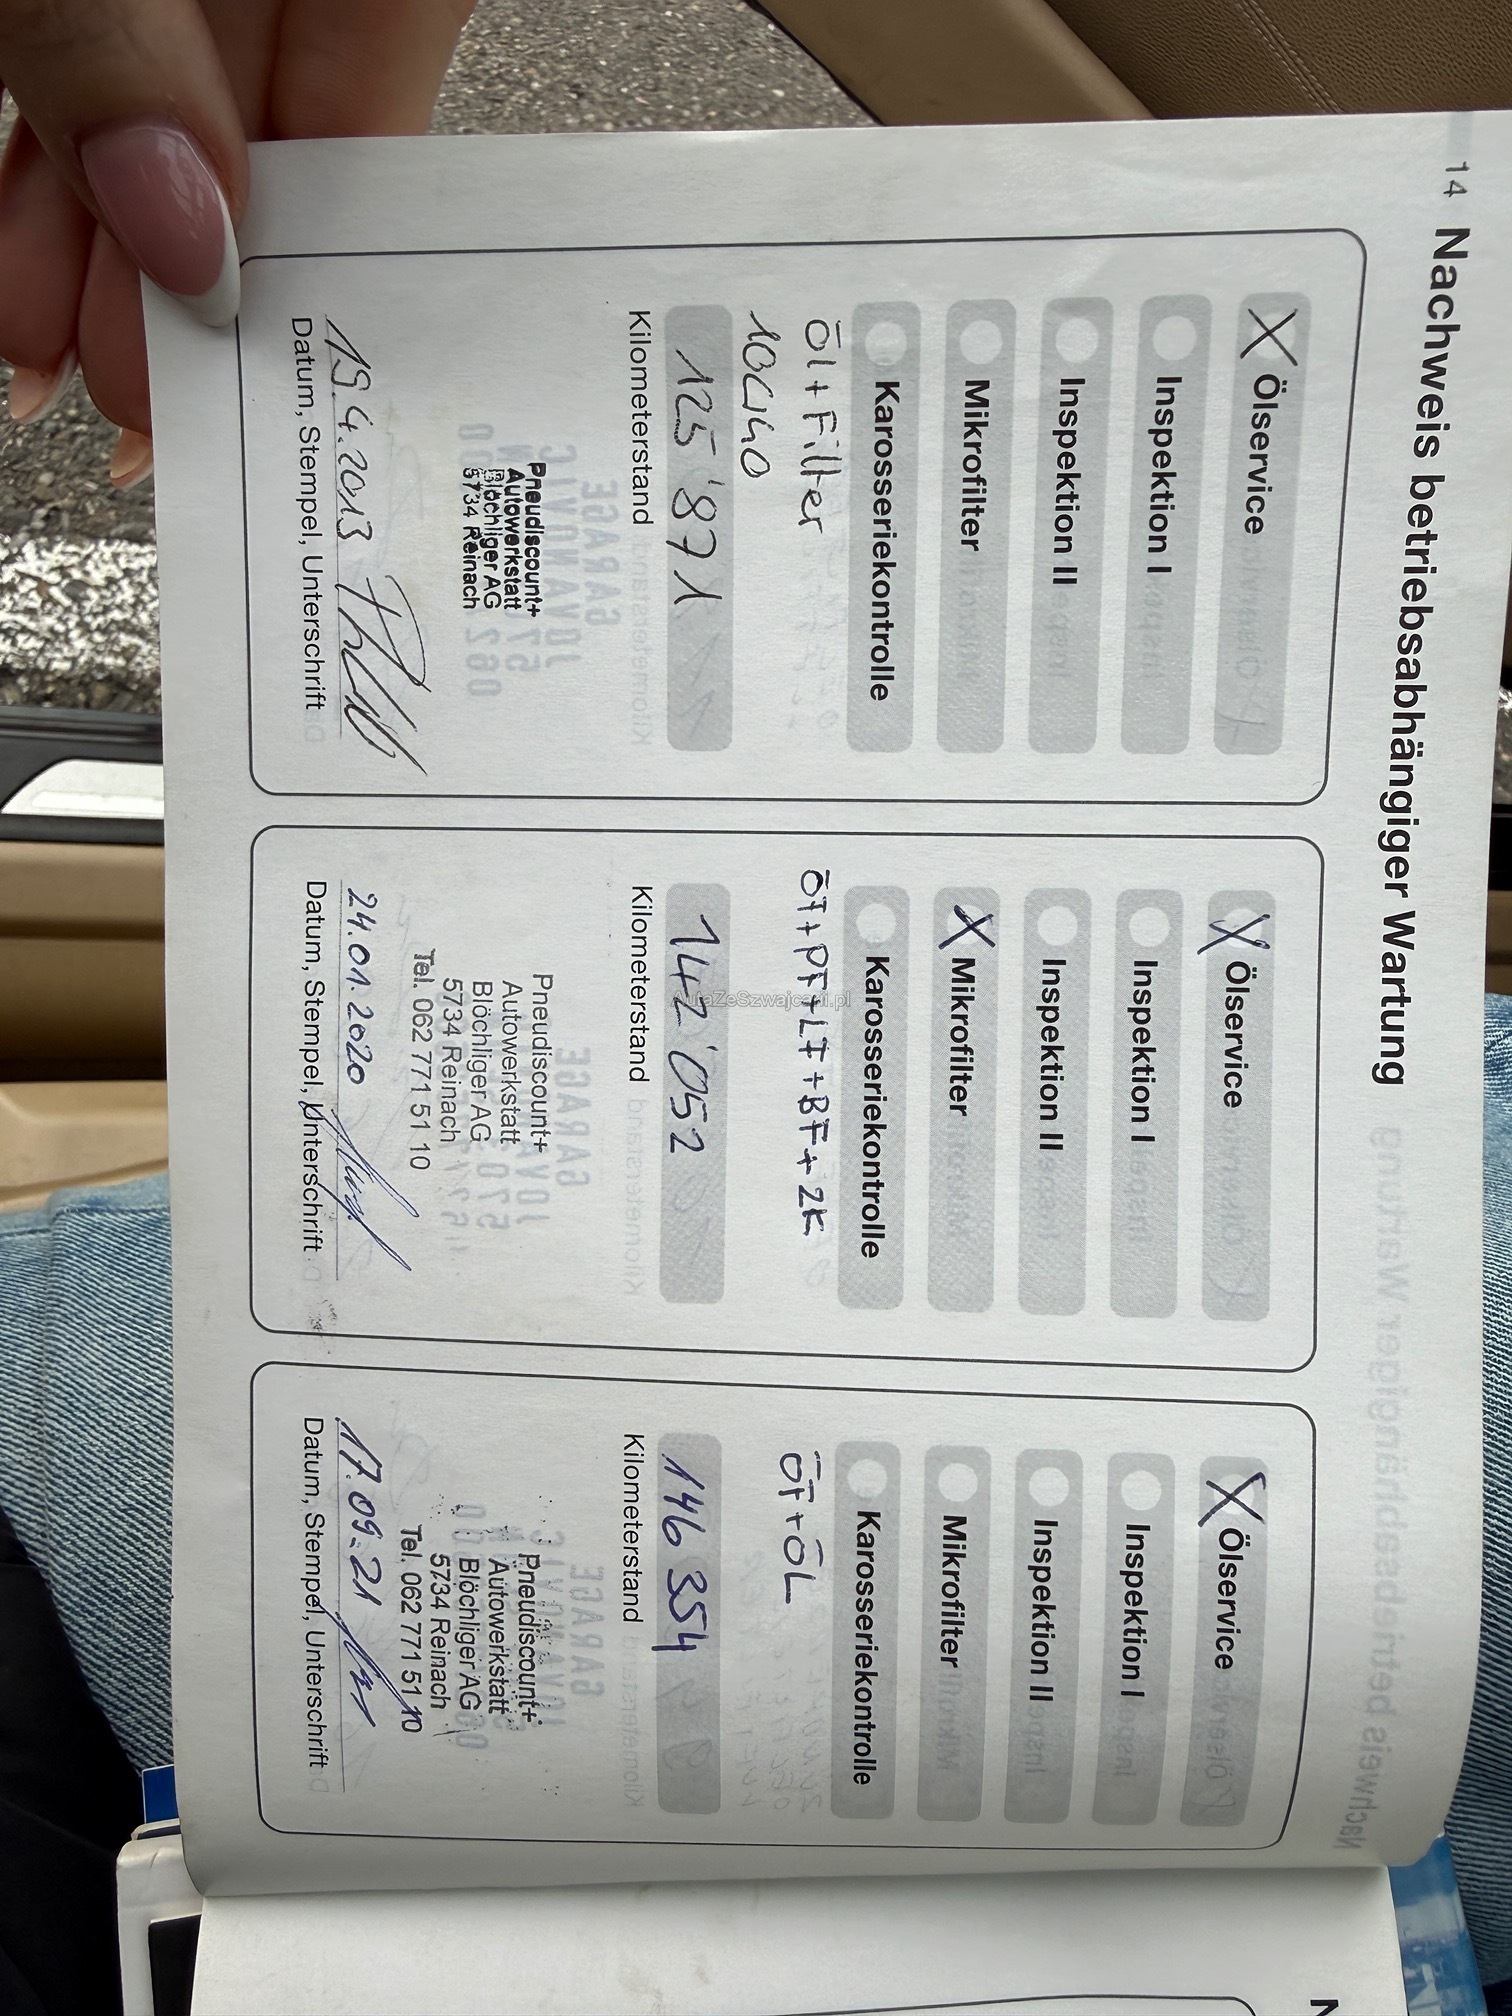 14 Nachweis betriebsabhängiger Wartung
X Ölservice
Inspektion I
Inspektion II
Mikrofilter
Karosseriekontrolle
Öl + Filter
10W40
125'871
Kilometerstand
Pneudiscount+
Autowerkstatt
Blöchliger AG
5734 Reinach
19.4.2013
Datum, Stempel, Unterschrift
X Ölservice
Inspektion I
Inspektion II
X Mikrofilter
Karosseriekontrolle
ÖF+PF+LF+BF+ZK
142'052
Kilometerstand
Pneudiscount+
Autowerkstatt
Blöchliger AG
5734 Reinach
Tel. 062 771 51 10
24.01.2020
Datum, Stempel, Unterschrift
X Ölservice
Inspektion I
Inspektion II
Mikrofilter
Karosseriekontrolle
ÖF+ÖL
146 354
Kilometerstand
Pneudiscount+
Autowerkstatt
Blöchliger AG
5734 Reinach
Tel. 062 771 51 10
17.09.21
Datum, Stempel, Unterschrift
AutaZeSzwajcarii.pl
N